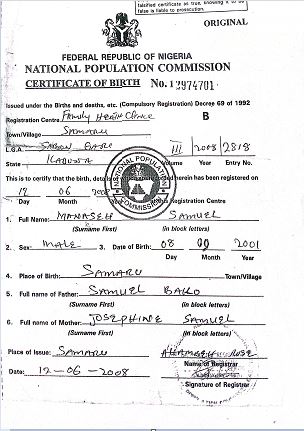 falsified certificate as true, knowing it to be
false is liable to prosecution.
ORIGINAL
FEDERAL REPUBLIC OF NIGERIA
NATIONAL POPULATION COMMISSION
CERTIFICATE OF BIRTH No. 12974701
Issued under the Births and deaths, etc. (Compulsory Registration) Decree 69 of 1992
Registration Centre Family Health Clinic B
Town/Village SAMARU
L.G.A. SABON GARI III 2008 2818
State KADUNA Volume Year Entry No.
This is to certify that the birth, details of which are recorded herein has been registered on
12 06 2008
Day Month Registration Centre
NATIONAL POPULATION COMMISSION
1. Full Name: MANASEH SAMUEL
(Surname First) (in block letters)
2. Sex MALE 3. Date of Birth: 08 09 2001
Day Month Year
4. Place of Birth: SAMARU Town/Village
5. Full name of Father: SAMUEL BAKO
(Surname First) (in block letters)
6. Full name of Mother: JOSEPHINE SAMUEL
(Surname First) (in block letters)
Place of Issue: SAMARU ROSE
Name of Registrar
Date: 12-06-2008
Signature of Registrar